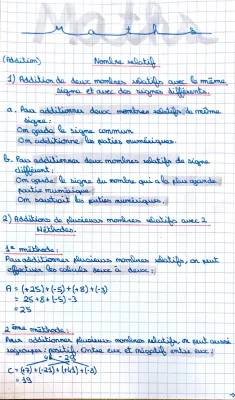 Maths
(Addition) Nombre relatif
1) Addition de deux nombres relatifs avec le même
signe et avec des signes différents.
a. Pour additionner deux nombres relatifs de même
signe :
On garde le signe commun
On additionne les parties numériques.
b. Pour additionner deux nombres relatifs de signe
différent :
On garde le signe du nombre qui a la plus grande
partie numérique
On soustrait les parties numériques.
2) Additions de plusieurs nombres relatifs avec 2
Méthodes.
1ère méthode :
Pour additionner plusieurs nombres relatifs, on peut
effectuer les calculs deux à deux :
A = (+25)+(-5)+(+8)+(-3)
= 25+8+(-5)-3
= 25
2ème méthode :
Pour additionner plusieurs nombres relatifs, on peut aussi
regrouper : positif. Entre eux et négatif entre eux :
C = (+7)+(-21)+
= 19